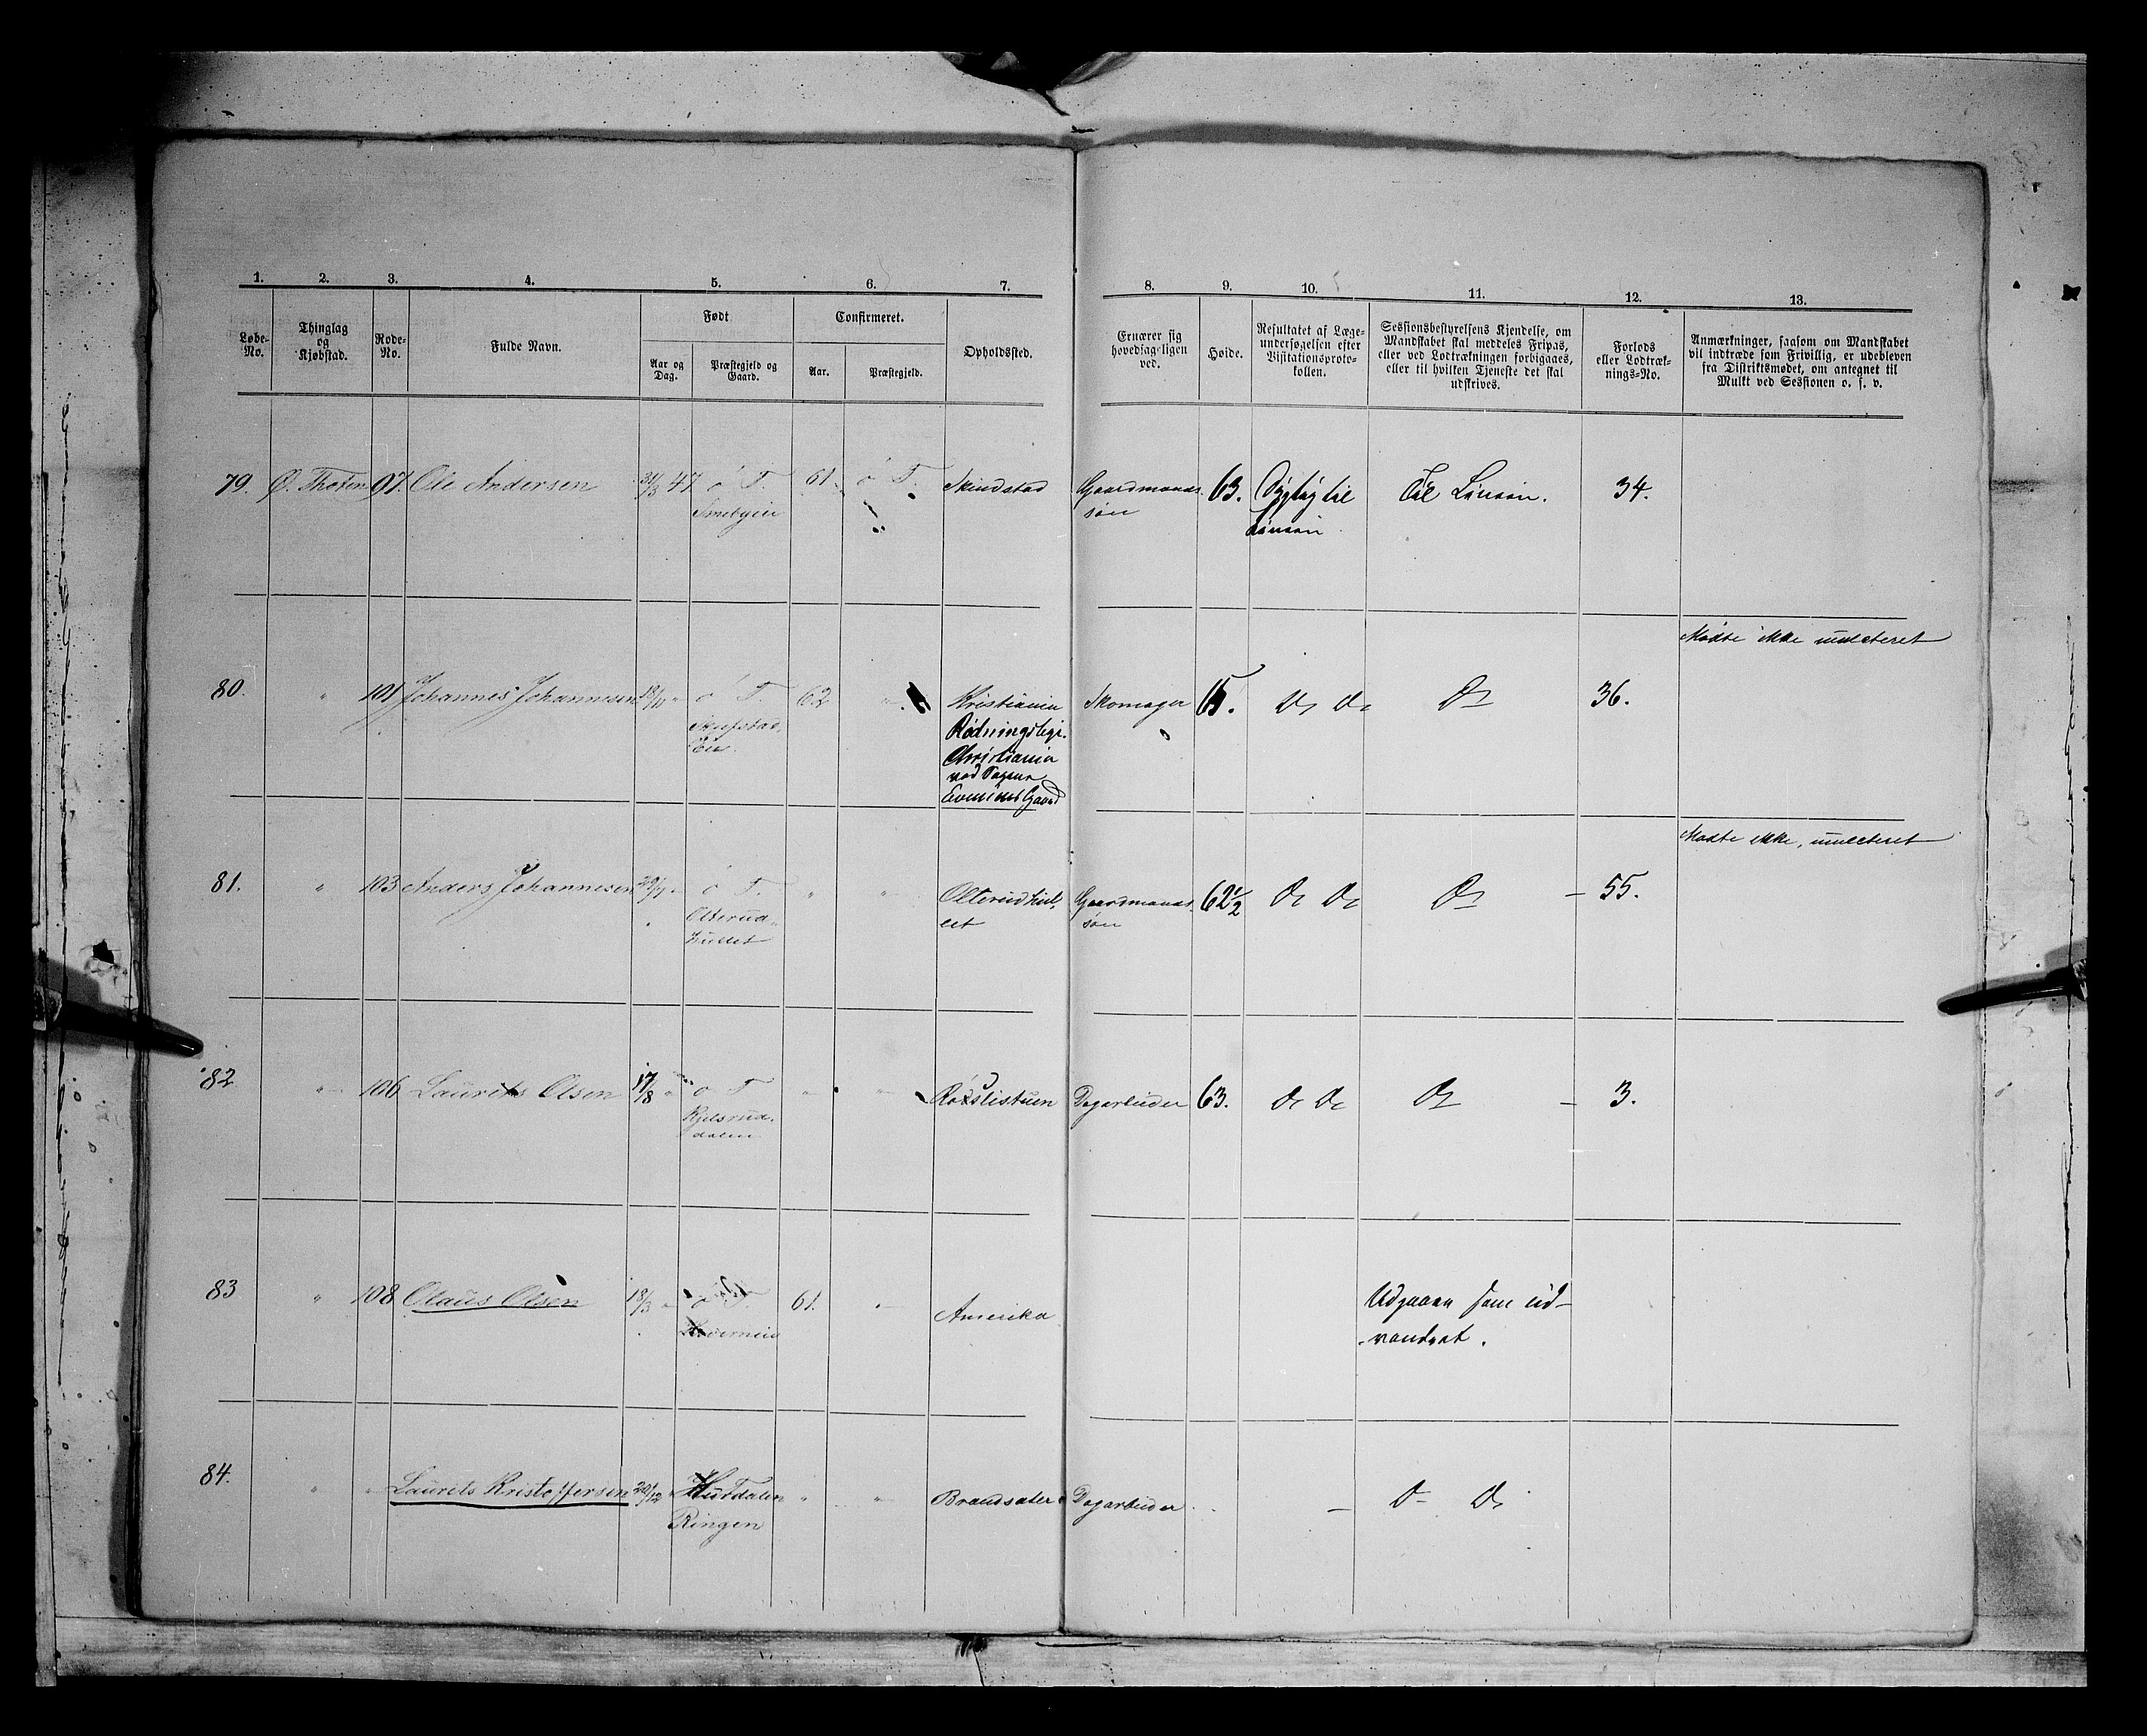 1. 2. 3. 4. 5. 6. 7. 8. 9. 10. 11. 12. 13.
Løbe-No.
Thinglag og Kjøbstad.
Rode-No.
Fulde Navn.
Født
Aar og Dag.
Præstegjeld og Gaard.
Confirmeret.
Aar.
Præstegjeld.
Opholdssted.
Ernærer sig hovedsageligen ved.
Høide.
Resultatet af Læge-undersøgelsen efter Visitationsproto-kollen.
Sessionsbestyrelsens Kjendelse, om Mandskabet skal meddeles Fripas, eller ved Lodtrækningen forbigaaes, eller til hvilken Tjeneste det skal udskrives.
Forlods eller Lodtræk-nings-No.
Anmærkninger, saasom om Mandskabet vil indtræde som Frivillig, er udebleven fra Distriktsmødet, om antegnet til Mulkt ved Sessionen o. s. v.
79. Ø. Thoten 97. Ole Andersen 31/3 47 ö T. 61. ö T. Skindstad Gaardmands 63. Dygtig til Til Linien. 34.
søn Linien
Mødte ikke mulcteret
80. " 101 Johannes Johannesen 18/10 " ö T. 62 " Kristiania Skomager 65. Do Do Do 36.
Eie. Rødningslegr.
Christiania
ved
Gaard
Mødte ikke, mulcteret
81. " 103 Anders Johannesen 29/7 " ö T. " " Olterudhul- Gaardmands 62 1/2 Do Do Do – 55.
Olterud- et søn
hullet
82 " 106 Laurits Olsen 17/8 " ö T " " Røislistuen Dagarbeider 63. Do Do Do – 3.
Kjelsrud-
dalen
83 " 108 Olaus Olsen 18/3 " ö T 61. " Amerika Udgaaen som ud-
vandret.
84. " " Laurits Kristoffersen 20/12 " Hurdalen " " Brandsæter Dagarbeider – Do Do
Ringen